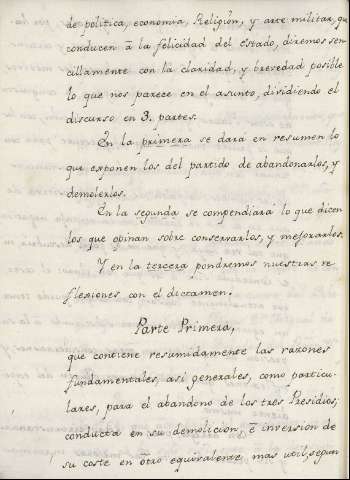 de politica, economia, Religion, y arte militar, que
conducen â la felicidad del Estado, diremos sen-
cillamente con la claridad, y brevedad posible
lo que nos parece en el asunto, dividiendo el
discurso en 3. partes.
En la primera se dará en resumen lo
que exponen los del partido de abandonarlos, y
demolerlos.
En la segunda se compendiará lo que dicen
los que opinan sobre conservarlos, y mejorarlos.
Y en la tercera pondremos nuestras re-
flexiones con el dictamen.
Parte Primera,
que contiene resumidamente las razones
fundamentales, asi generales, como particu-
lares, para el abandono de los tres Presidios;
conducta en su demolicion, ê inversion de
su coste en ôtro equivalente mas util, segun